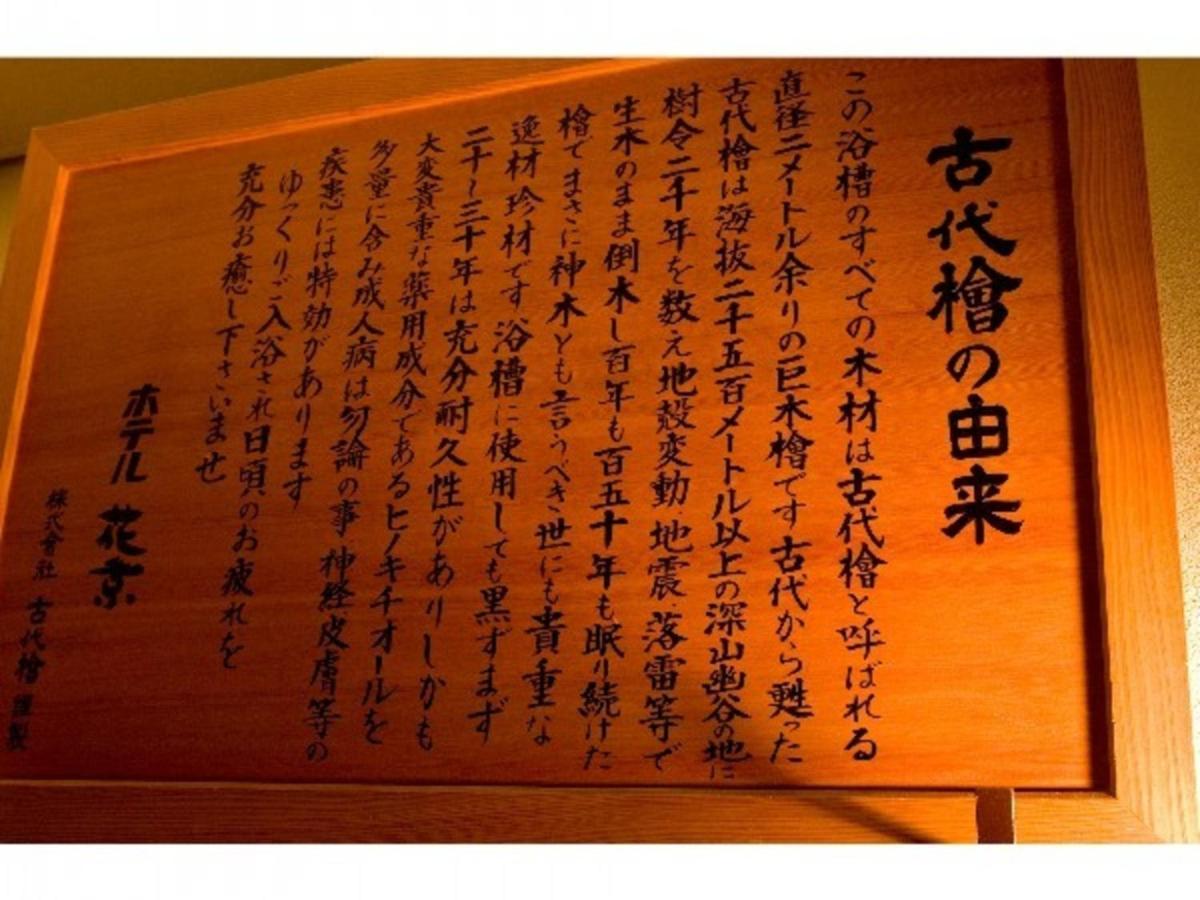 古代檜の由来
この浴槽のすべての木材は古代檜と呼ばれる
直径二メートル余りの巨木檜です古代から甦った
古代檜は海抜二千五百メートル以上の深山幽谷の地に
樹令二千年を数え地殻変動、地震、落雷等で
生木のまま倒木し百年も百五十年も眠り続けた
檜でまさに神木とも言うべき世にも貴重な
逸材珍材です浴槽に使用しても黒ずまず
二十〜三十年は充分耐久性がありしかも
大変貴重な薬用成分であるヒノキチオールを
多量に含み成人病は勿論の事、神経皮膚等の
疾患には特効があります
ゆっくりご入浴され日頃のお疲れを
充分お癒し下さいませ
ホテル 花京
株式會社 古代檜 謹製